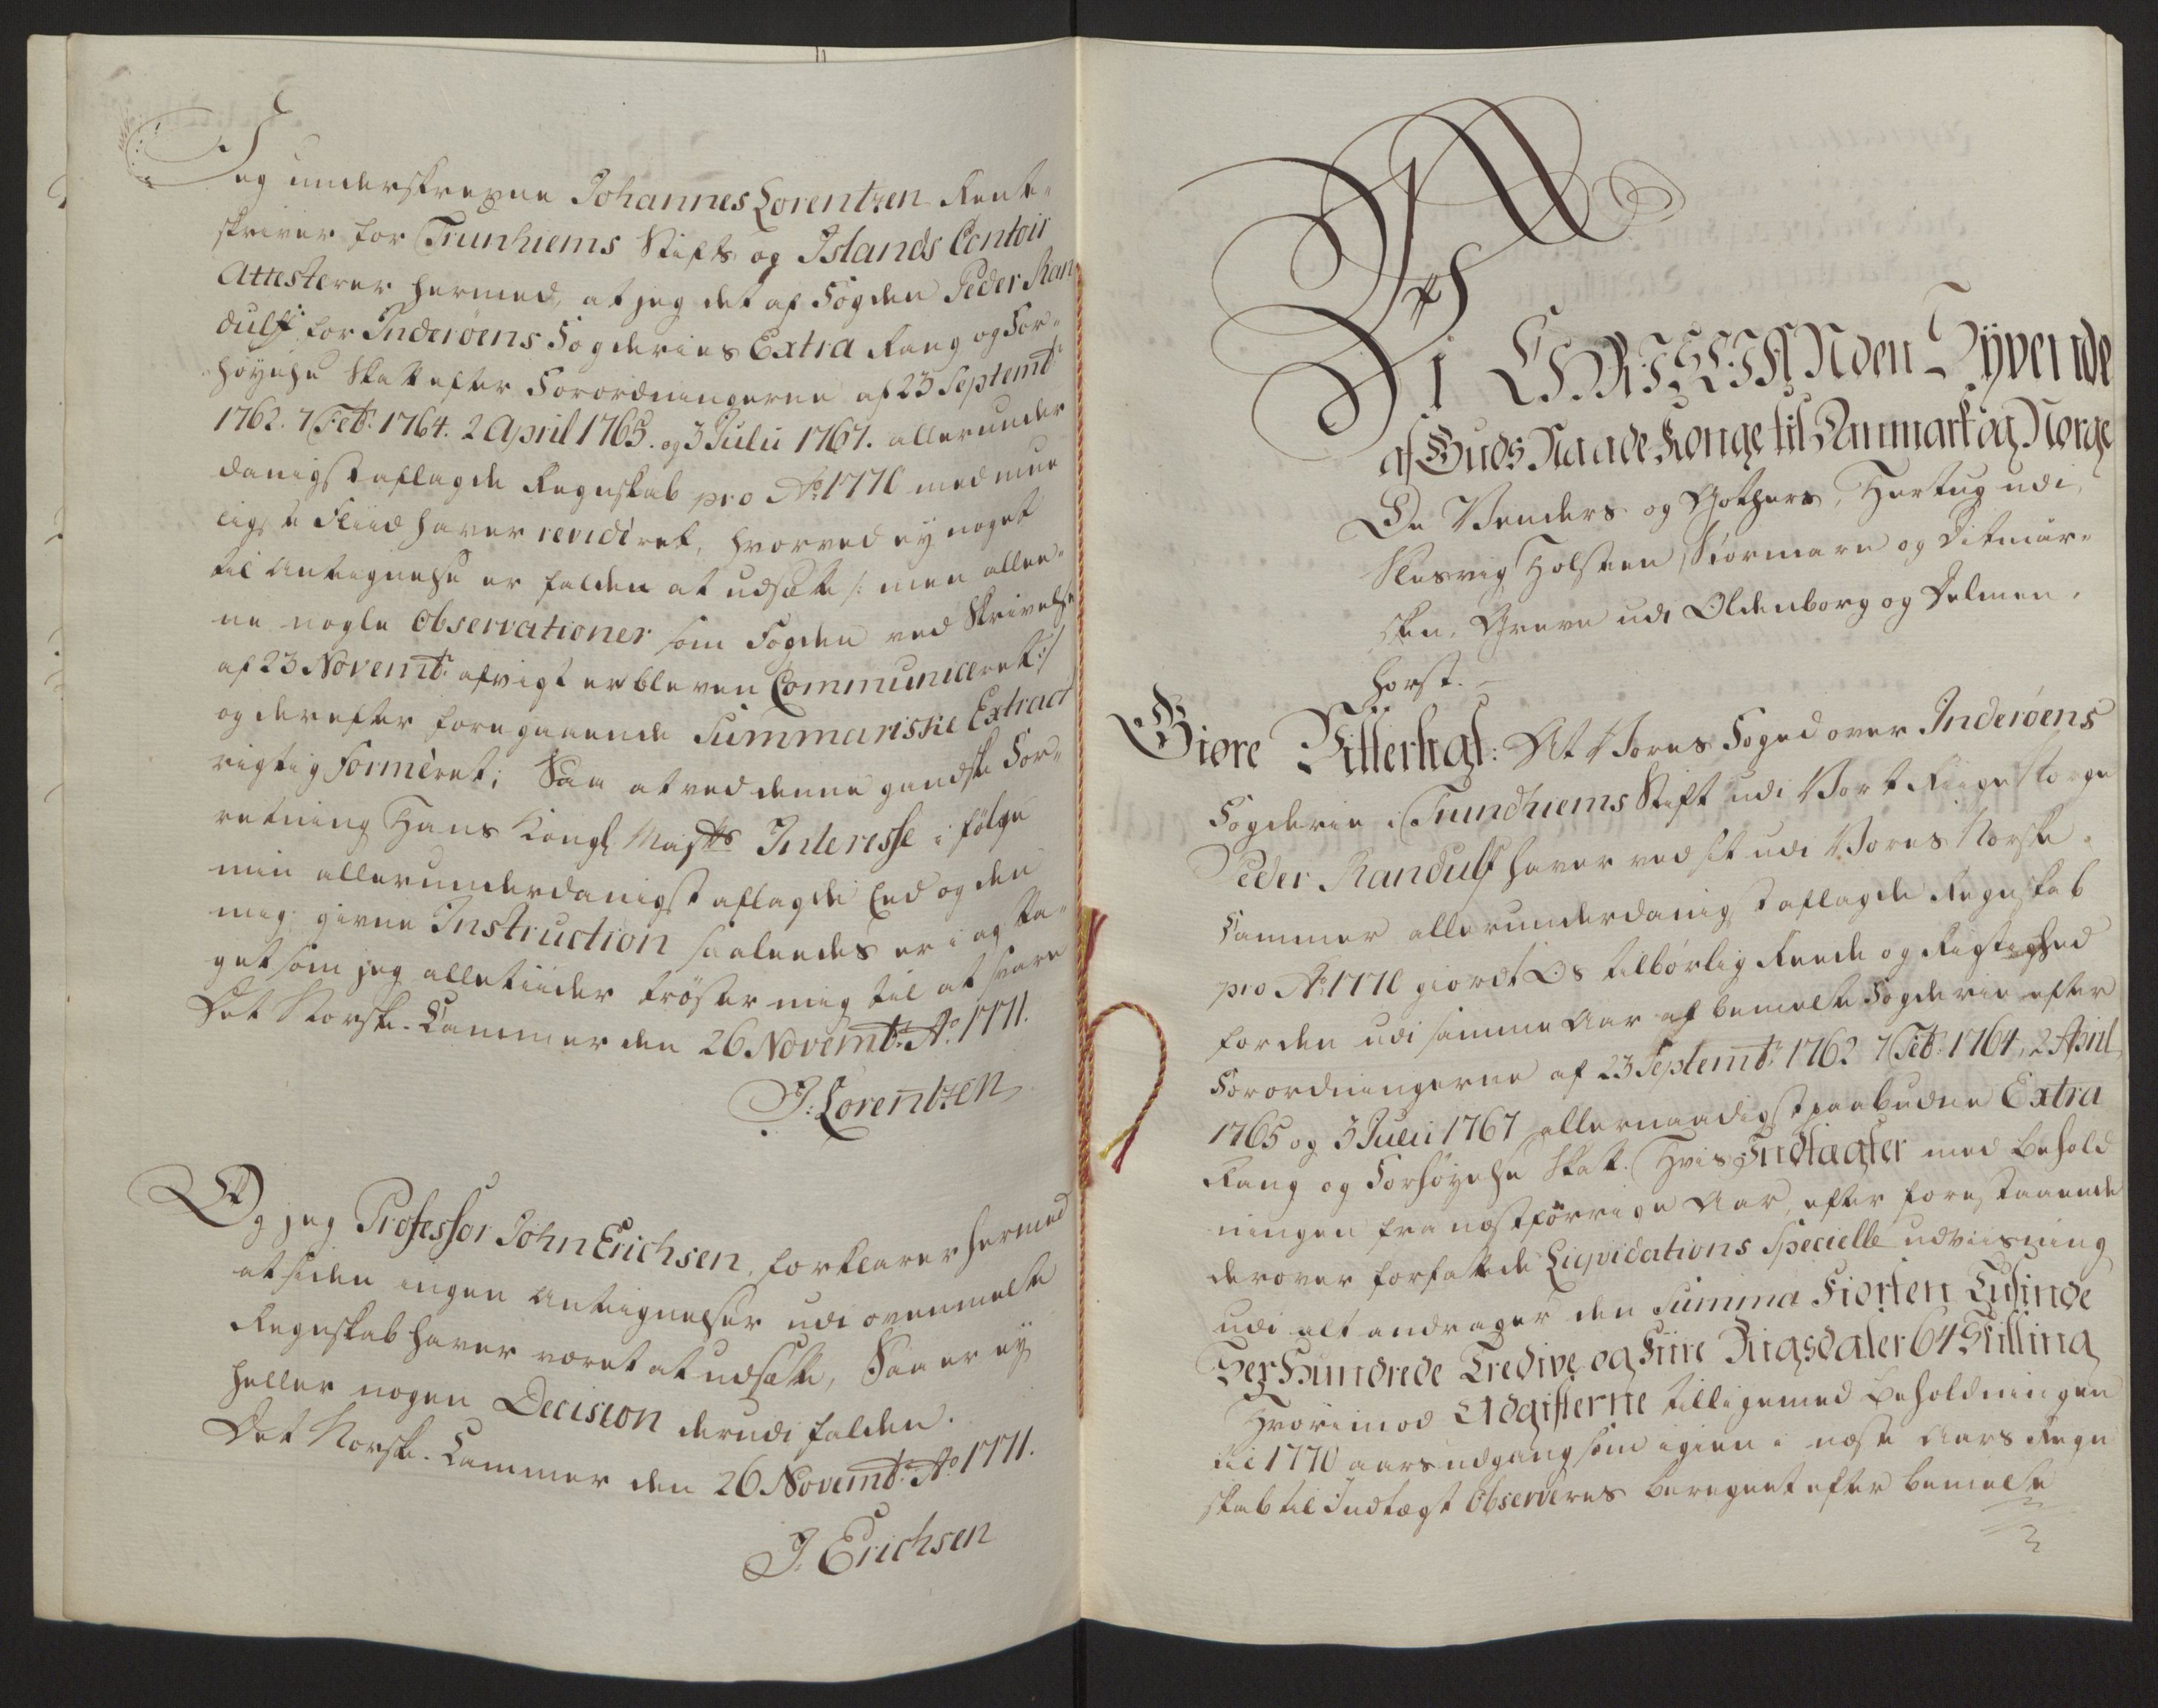 Jeg underskrevne Johannes Lorentzen Rente-
skriver for Trunhiems Stifts og Islands Contoir
Attesterer hermed, at jeg det af Fogden Peder Ran
dulff for Inderöens Fogderies Extra Rang og For-
höyelse Skatt efter Forordningerne af 23 Septembr
1762. 7 Febr: 1764. 2 April 1765. og 3 Julii 1767. allerunder
danigst aflagde Regnskab pro Ao: 1770 med mue
ligste Fliid haver revideret, hvorved ey noget
til Antegnelse er falden at udsætte /: men allee-
ne nogle Observationer som Fogden ved Skrivelse
af 23 Novembr: afvigt er bleven Communiceret :/
og derefter foregaaende Summariske Extract
rigtig Formeret; Saa at ved denne gandske For-
retning Hans Kongl Majtts Interesse i fölge
min allerunderdanigst aflagde Eed og den
mig givne Instruction saaledes er i agt ta-
get som jeg alletiider tröster mig til at svare
Det Norske Cammer den 26 Novembr: Ao: 1771.
J: Lorentzen
Og jeg Professor John Erichsen, forklarer hermed
at siden ingen Antegnelser udi ovenmelte
Regnskab haver været at udsætte, Saa er ey
heller nogen Decision derudi falden.
Det Norske Cammer den 26 Novembr: Ao 1771.
J. Erichsen
Wi CHRISTIAN den Syvende
af Guds Naade Konge til Danmark og Norge
De Venders og Gothers, Hertug udi
Slesvig Holsten Stormarn og Ditmar-
sken, Greve udi Oldenborg og Delmen-
horst.
Giöre Vitterligt: At Vores Foged over Inderöens
Fogderie i Trundhiems Stift udi Vort Riige Norge
Peder Randulf haver ved sit udi Vores Norske
Cammer allerunderdanigst aflagde Regnskab
pro Ao: 1770 giordt Os tilbörlig Reede og Rigtighed
for den udi samme Aar af bemelte Fogderie efter
Forordningerne af 23 Septembr: 1762 7 Febr: 1764, 2 April
1765 og 3 Julii 1767 allernaadigst paabudne Extra
Rang og Forhöyelse Skatt. Hvis Indtægter med Behold
ningen fra næstforrige Aar, efter forestaaende
derover forfattede Liqvidations Specielle udviisning
udi alt andrager den Summa Fiorten Tusinde
Sex Hundrede Tredive og Fiire Riigsdaler 64 Skilling
Hvorimod Udgifterne tilligemed Beholdningen
til 1770 aars udgang som igien i næste Aars Regn
skab til Indtægt Observeres beregnet efter bemelte